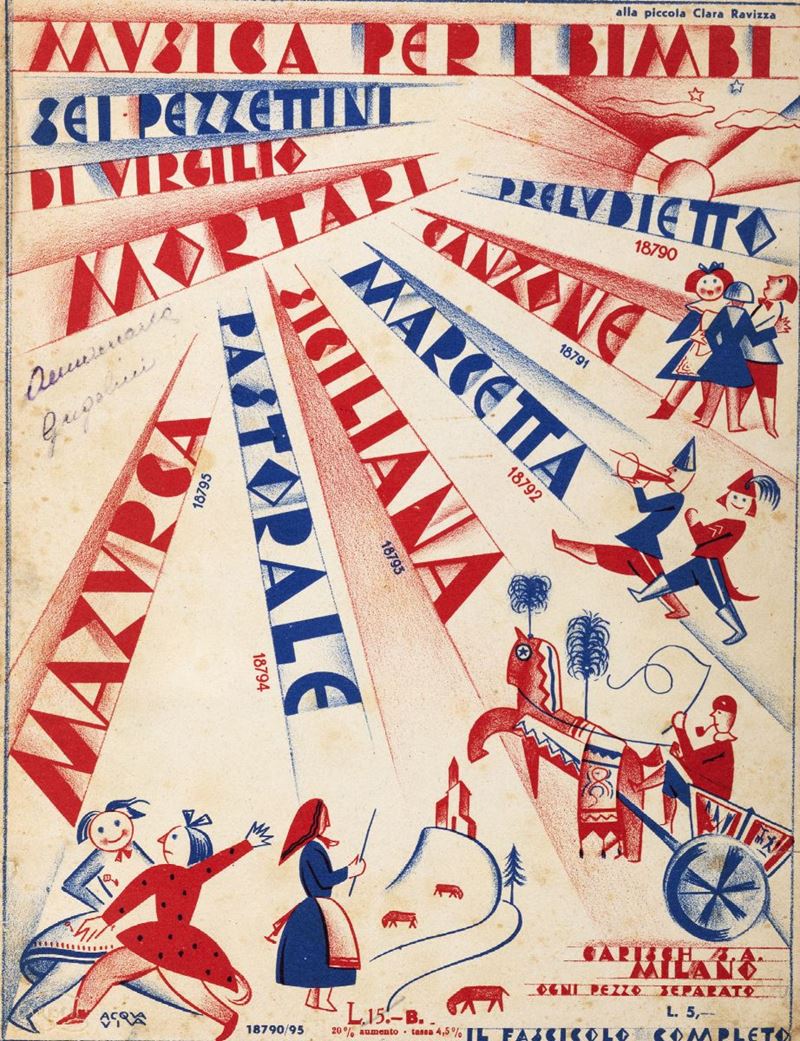 alla piccola Clara Ravizza
MVSICA PER I BIMBI
SEI PEZZETTINI
DI VIRGILIO
MORTARI
PRELVDIETTO
18790
CANZONE
18791
MARCETTA
18792
SICILIANA
18793
PASTORALE
18794
MAZVRCA
18795
CARISCH S.A.
MILANO
OGNI PEZZO SEPARATO
L. 5,—
IL FASCICOLO COMPLETO
L. 15.—B.
20% aumento - tassa 4,5%
18790/95
ACQVA
VIVA